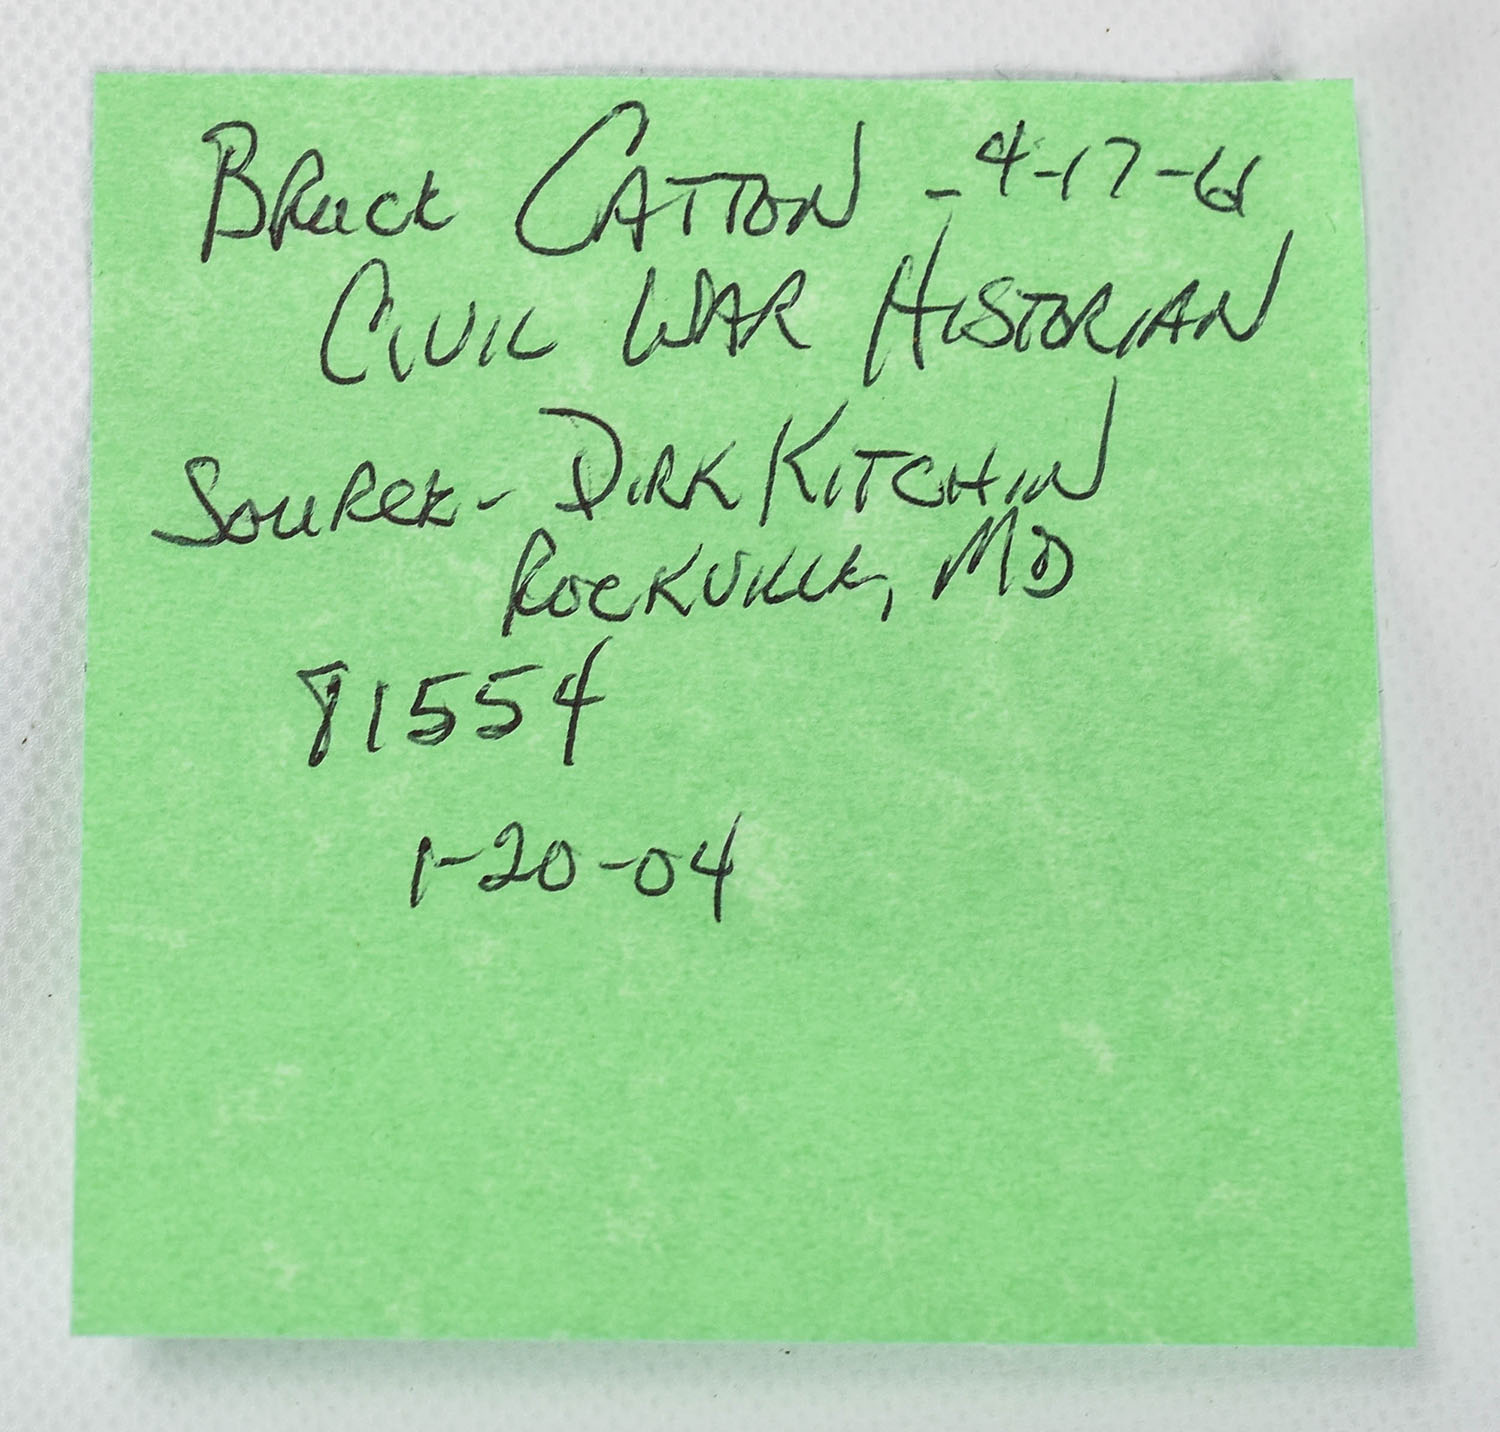 Bruce Catton - 4-17-61
Civil War Historian
Source - Dirk Kitchin
Rockville, MD
81554
1-20-04